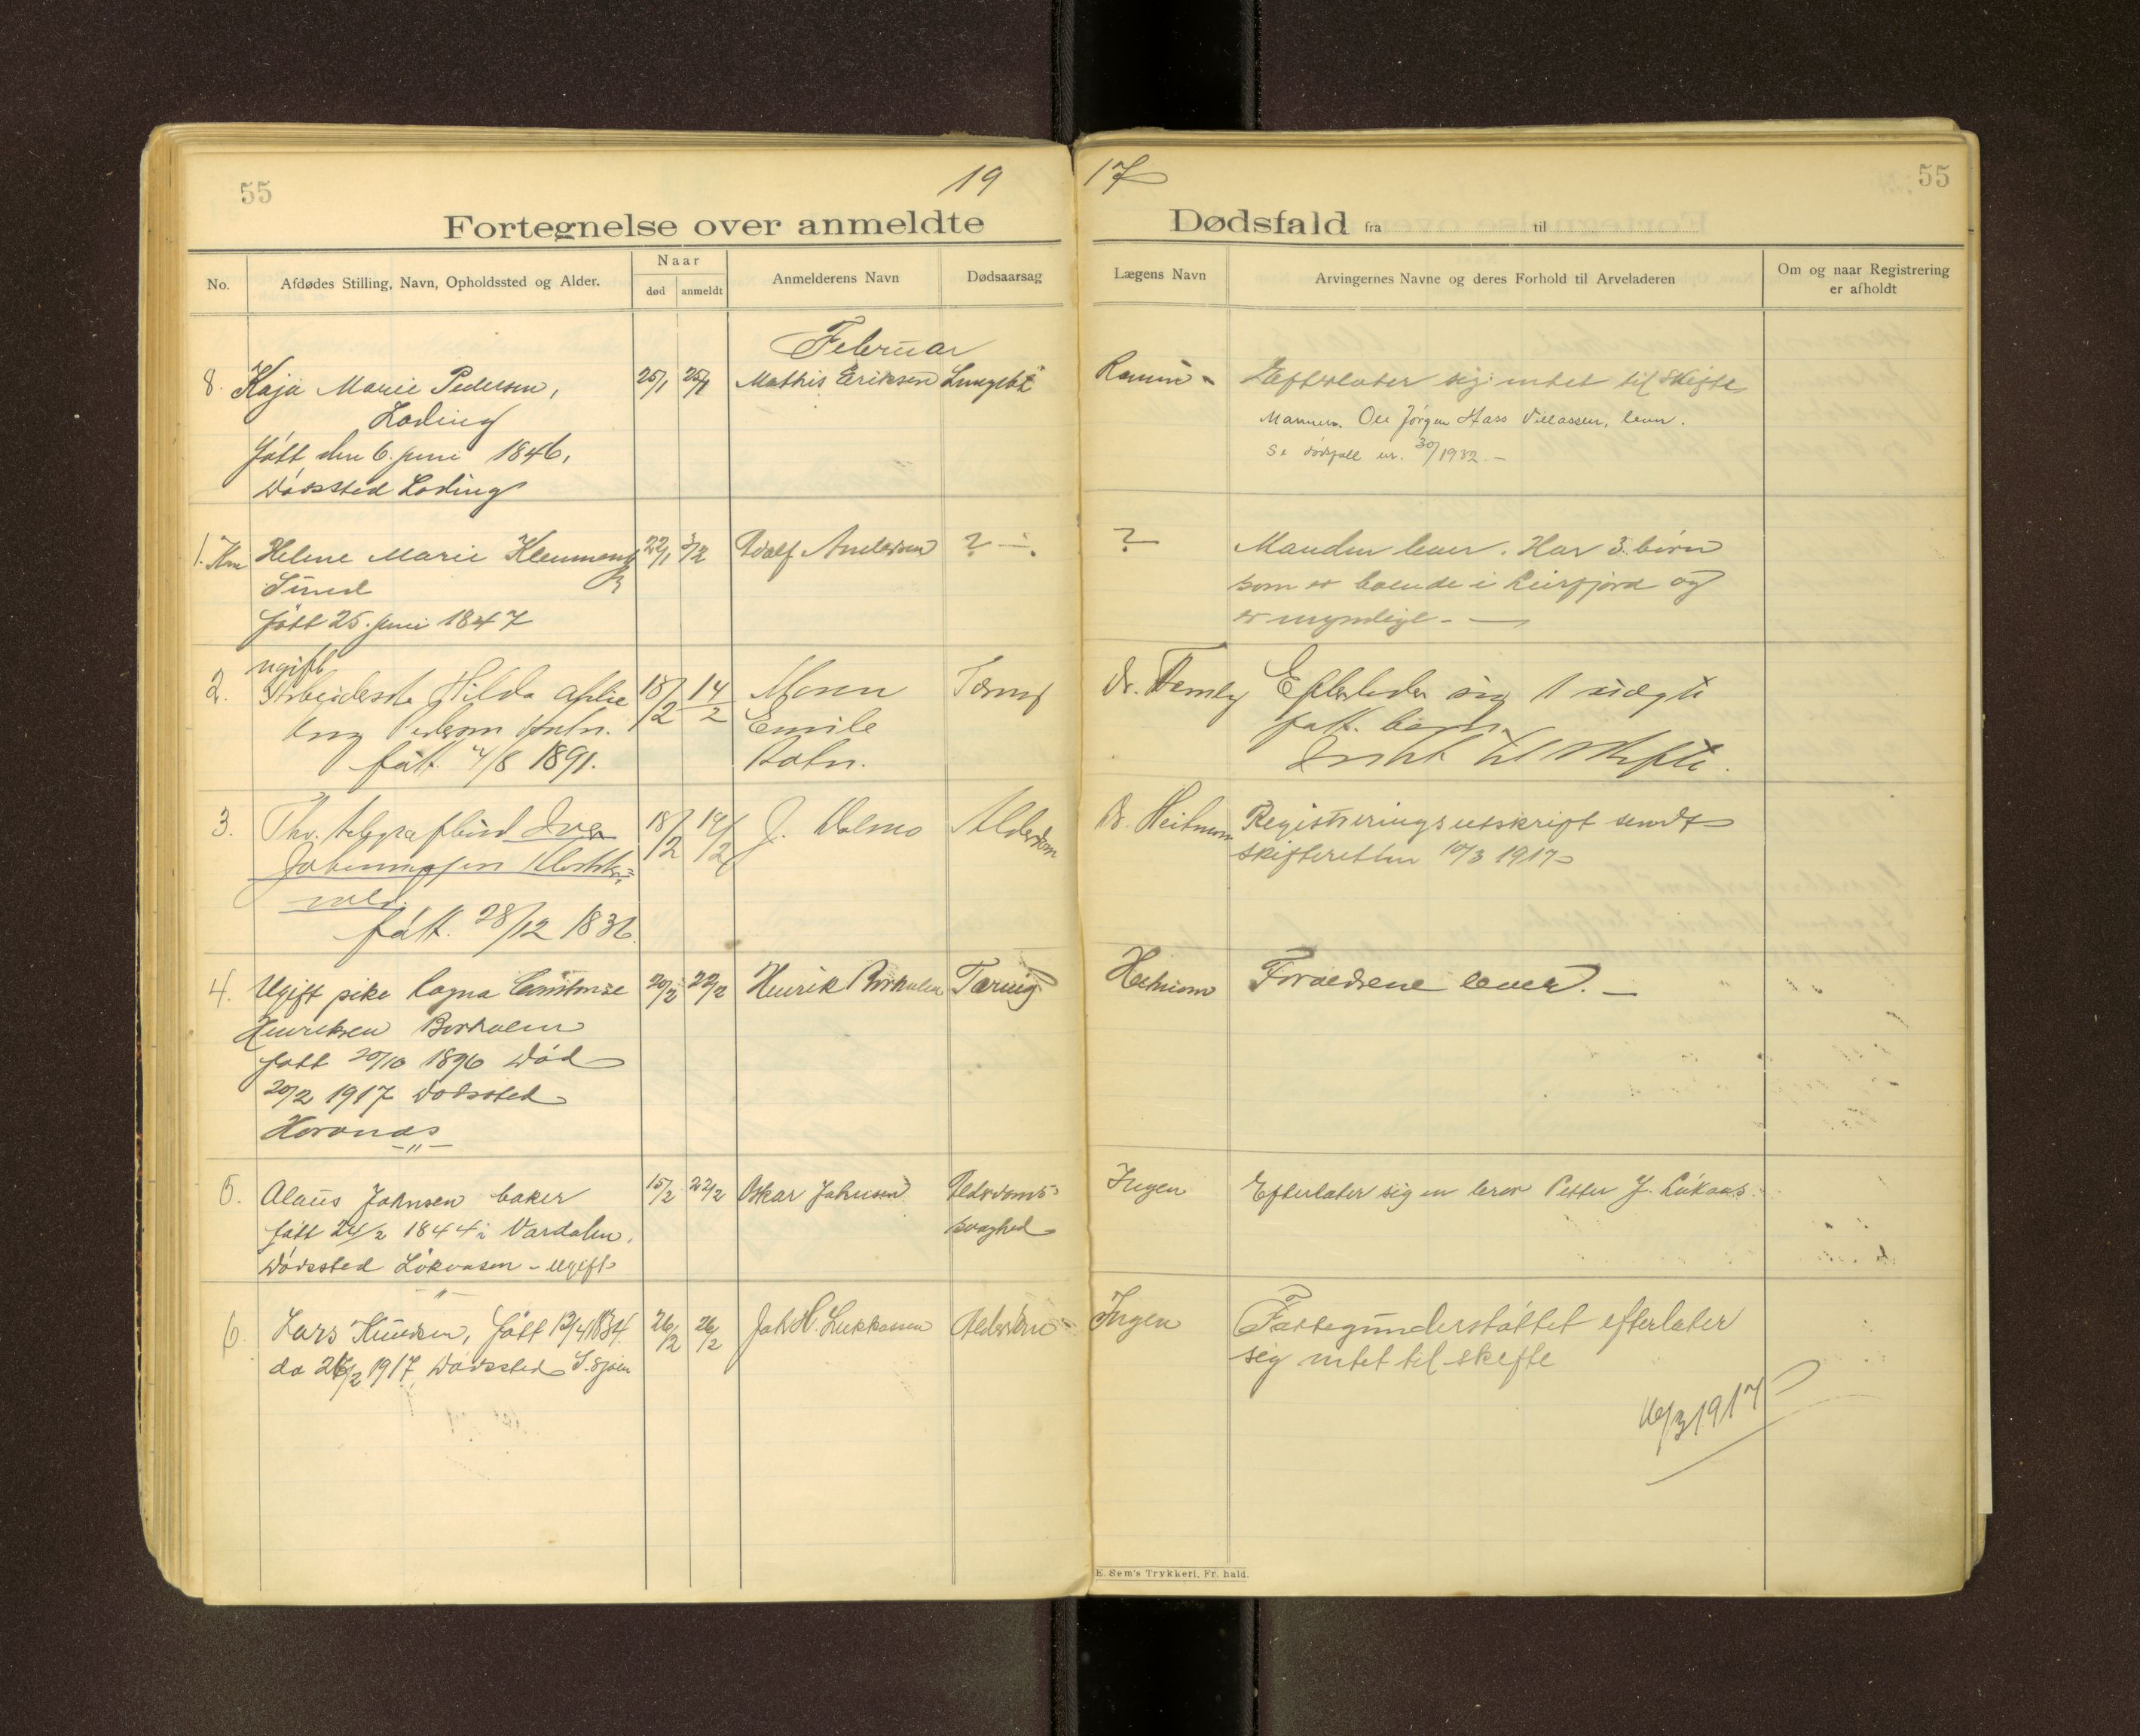 55
19
17
55
Fortegnelse over anmeldte
Dødsfald fra til
No.
Afdødes Stilling, Navn, Opholdssted og Alder.
Naar
død
anmeldt
Anmelderens Navn
Dødsaarsag
Lægens Navn
Arvingernes Navne og deres Forhold til Arveladeren
Om og naar Registrering
er afholdt
Februar
8. Kaja Marie Pedersen,
Loding
født den 6. juni 1846,
Dødssted Loding
25/1
25/1
Mathis Eriksen
Efterlater sig intet til skifte
Mannen Ole Jørgen Hass lever.
Se dødsfall nr. 30/1932.-
1. Helene Marie
Sund
født 25. juni 1847
22/1
3/2
Adolf Andersen
?
?
Manden lever. Har 3 børn
som er boende i Leirfjord og
er myndige -
2. ugift
Arbeiderske Hilda
født 4/8 1891.
18/2
14/2
Moren
Emilie
Dr.
Efterlader sig 1 uægte
født barn
Intet til skifte.
3. telegrafbud
født 28/12 1836
18/2
19/2
Alderdom
Dr.
Registreringsutskrift sendt
skifteretten 10/3 1917
4. Ugift pike Ragna
Henriksen
født 20/10 1896 død
20/2 1917 dødssted
20/2
22/2
Henrik
Tæring
Forældrene lever. -
5. Alaus Johnsen baker
født 24/2 1844 i Vardalen,
Dødssted - ugift
15/2
22/2
Oskar Johnsen
Alderdoms-
svaghed
Ingen
Efterlater sig en bror Petter J.
6. Lars Knudsen, født
26/2 1917 Dødssted
26/2
26/2
Joh. H. Lukkassen
Alderdom
Ingen
Fattigunderstøttet efterlater
sig intet til skifte
16/3 1917
E. Sem's Trykkeri, Fr. hald.